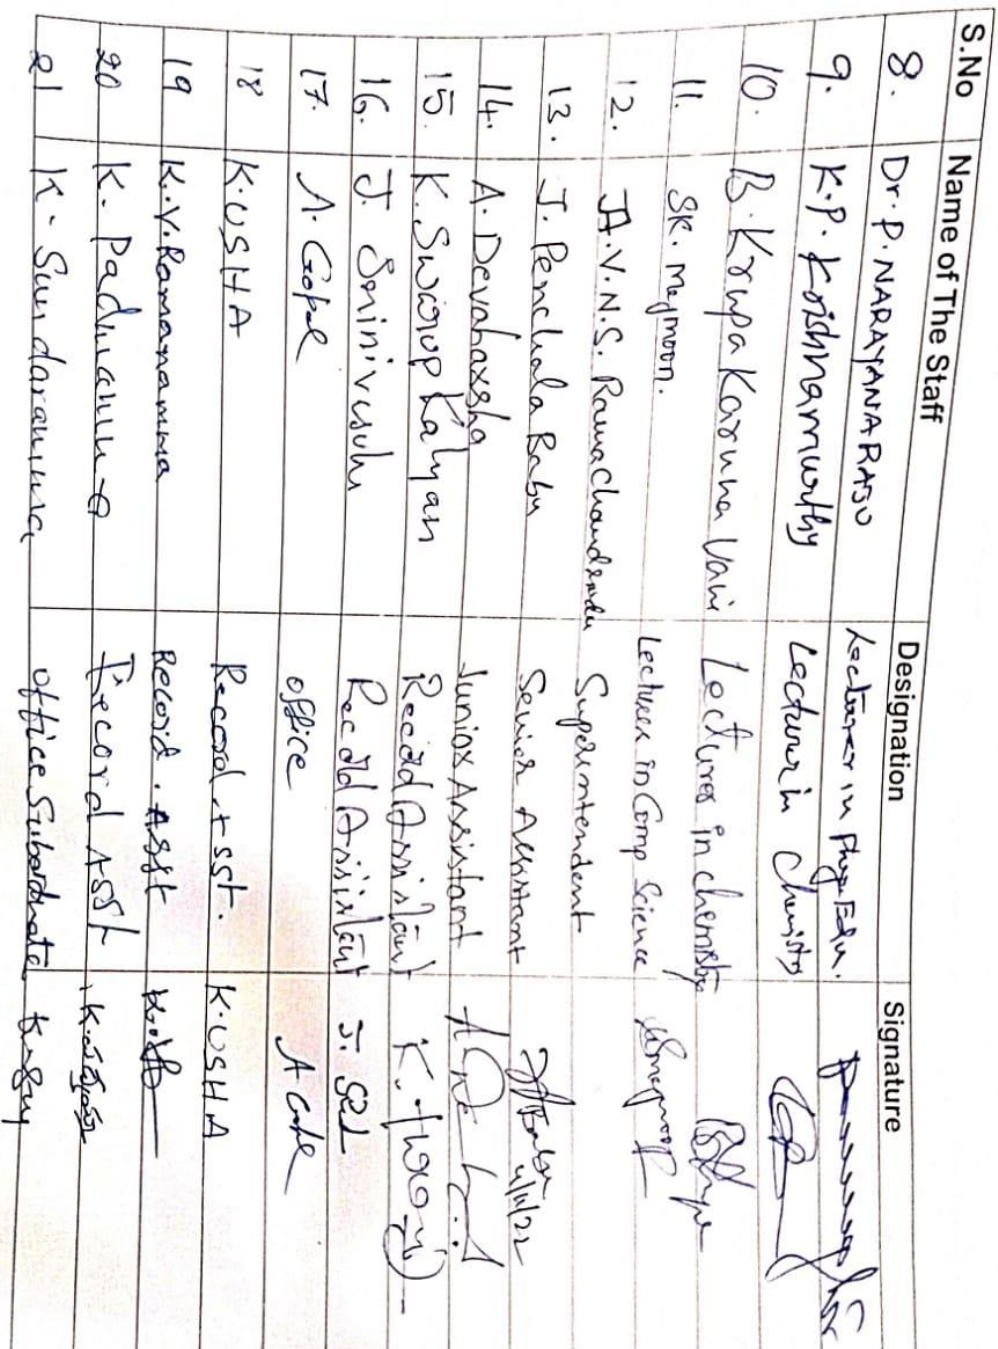 S.No Name of The Staff Designation Signature
8. Dr. P. NARAYANA RAJU Lecturer in Phy. Edu.
9. K.P. Krishnamurthy Lecturer in Chemistry
10. B. Krupa Karuna Vani Lecturer in chemistry
11. SK. Meymoon. Lecturer in Comp Science
12. J.A.V.N.S. Ramachandrudu Superintendent
13. J. Penchala Babu Senior Assistant 4/11/22
14. A. Devahaxsha Junior Assistant
15. K. Swarup Kalyan Record Assistant
16. J. Srinivasulu Record Assistant
17. A. Gopal office A Gopal
18 K. USHA Record Asst. K. USHA
19 K.V. Ramanamma Record. Asst
20 K. Padmamma Record Asst
21 K. Sundaramma office Subordinate